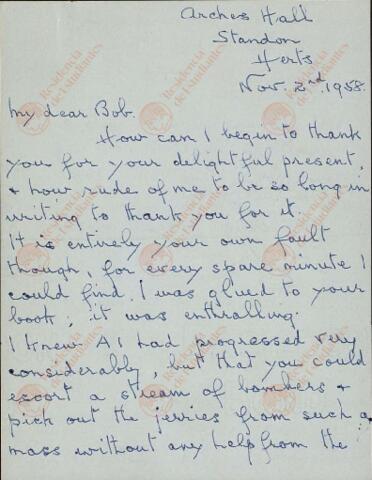 Arches Hall
Standon
Herts
Nov. 2nd. 1958.
My dear Bob.
How can I begin to thank
you for your delightful present,
& how rude of me to be so long in
writing to thank you for it.
It is entirely your own fault
though, for every spare minute I
could find, I was glued to your
book; it was enthralling.
I knew A I had progressed very
considerably, but that you could
escort a stream of bombers &
pick out the jerries from such a
mass without any help from the
Residencia
de Estudiantes
Residencia
de Estudiantes
Residencia
de Estudiantes
Residencia
de Estudiantes
Residencia
de Estudiantes
Residencia
de Estudiantes